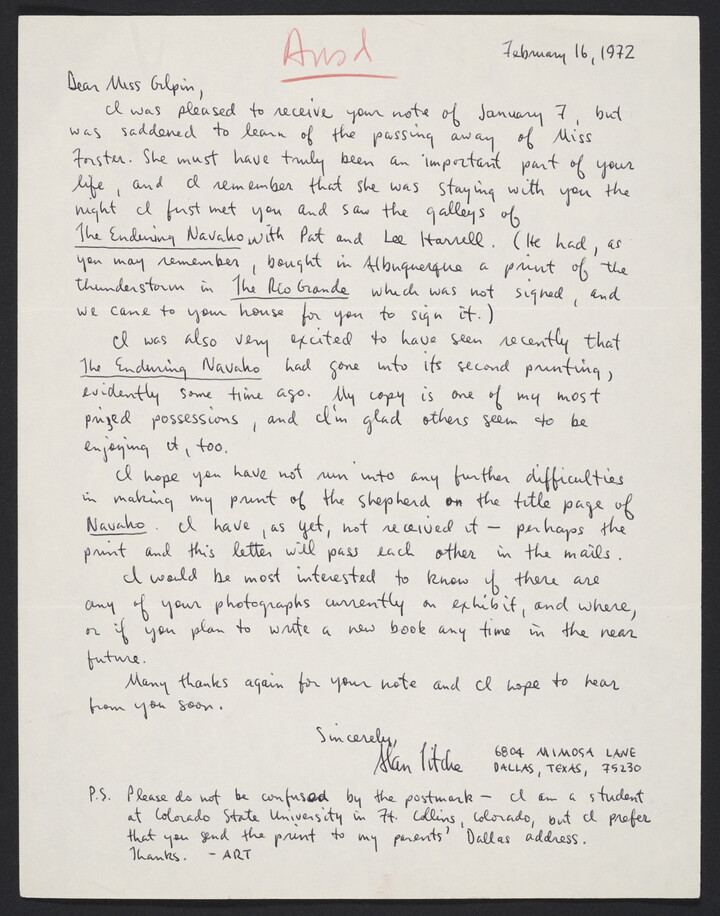 Ansd
February 16, 1972
Dear Miss Gilpin,
I was pleased to receive your note of January 7, but
was saddened to learn of the passing away of Miss
Forster. She must have truly been an important part of your
life, and I remember that she was staying with you the
night I first met you and saw the galleys of
The Enduring Navaho with Pat and Lee Harrell. (He had, as
you may remember, bought in Albuquerque a print of the
thunderstorm in The Rio Grande which was not signed, and
we came to your house for you to sign it.)
I was also very excited to have seen recently that
The Enduring Navaho had gone into its second printing,
evidently some time ago. My copy is one of my most
prized possessions, and I'm glad others seem to be
enjoying it, too.
I hope you have not run into any further difficulties
in making my print of the shepherd on the title page of
Navaho. I have, as yet, not received it — perhaps the
print and this letter will pass each other in the mails.
I would be most interested to know if there are
any of your photographs currently on exhibit, and where,
or if you plan to write a new book any time in the near
future.
Many thanks again for your note and I hope to hear
from you soon.
Sincerely,
Alan
6804 MIMOSA LANE
DALLAS, TEXAS, 75230
P.S. Please do not be confused by the postmark — I am a student
at Colorado State University in Ft. Collins, Colorado, but I prefer
that you send the print to my parents' Dallas address.
Thanks. - ART